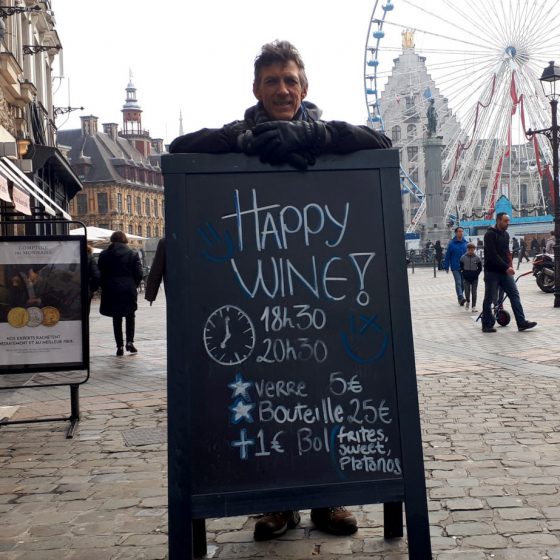 HAPPY
WINE!
18h30
20h30
verre 5€
Bouteille 25€
+ 1€ Bol frites,
sweet,
Platanos
COMPTOIR
DES MONNAIES
NOS EXPERTS RACHETENT